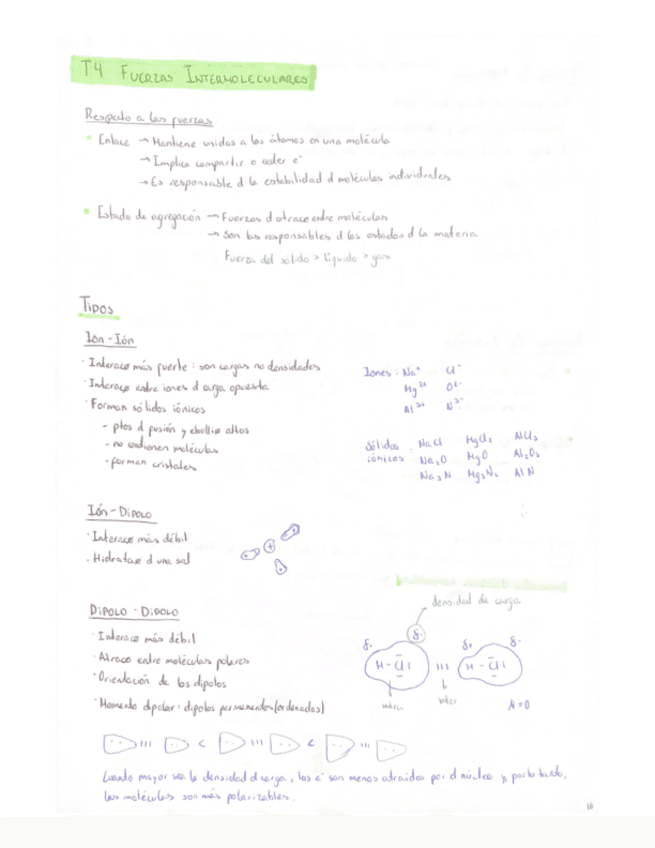 T4 FUERZAS INTERMOLECULARES
Respecto a las fuerzas
• Enlace → Mantiene unidos a los átomos en una molécula
→ Implica compartir o ceder e⁻
→ Es responsable d la estabilidad d moléculas individuales
• Estado de agregación → Fuerzas d atracc entre moléculas
→ Son las responsables d los estados d la materia
Fuerza del sólido > líquido > gas
TIPOS
Ión - Ión
· Interacc más fuerte : son cargas no densidades
· Interacc entre iones d carga opuesta
· Forman sólidos iónicos
- ptos d fusión y ebullic altos
- no contienen moléculas
- forman cristales
Iones : Na⁺ Cl⁻
Mg²⁺ O²⁻
Al³⁺ N³⁻
Sólidos iónicos : NaCl MgCl₂ AlCl₃
Na₂O MgO Al₂O₃
Na₃N Mg₃N₂ AlN
IÓN - DIPOLO
· Interacc más débil
· Hidratac d una sal
DIPOLO - DIPOLO
· Interacc más débil
· Atracc entre moléculas polares
· Orientación de los dipolos
· Momento dipolar : dipolos permanentes (ordenados)
densidad de carga
δ+ δ- δ+ δ-
H - Cl ||| H - Cl
Cuando mayor sea la densidad d carga, los e⁻ son menos atraidos por d núcleo y, por lo tanto,
las moléculas son más polarizables.
10